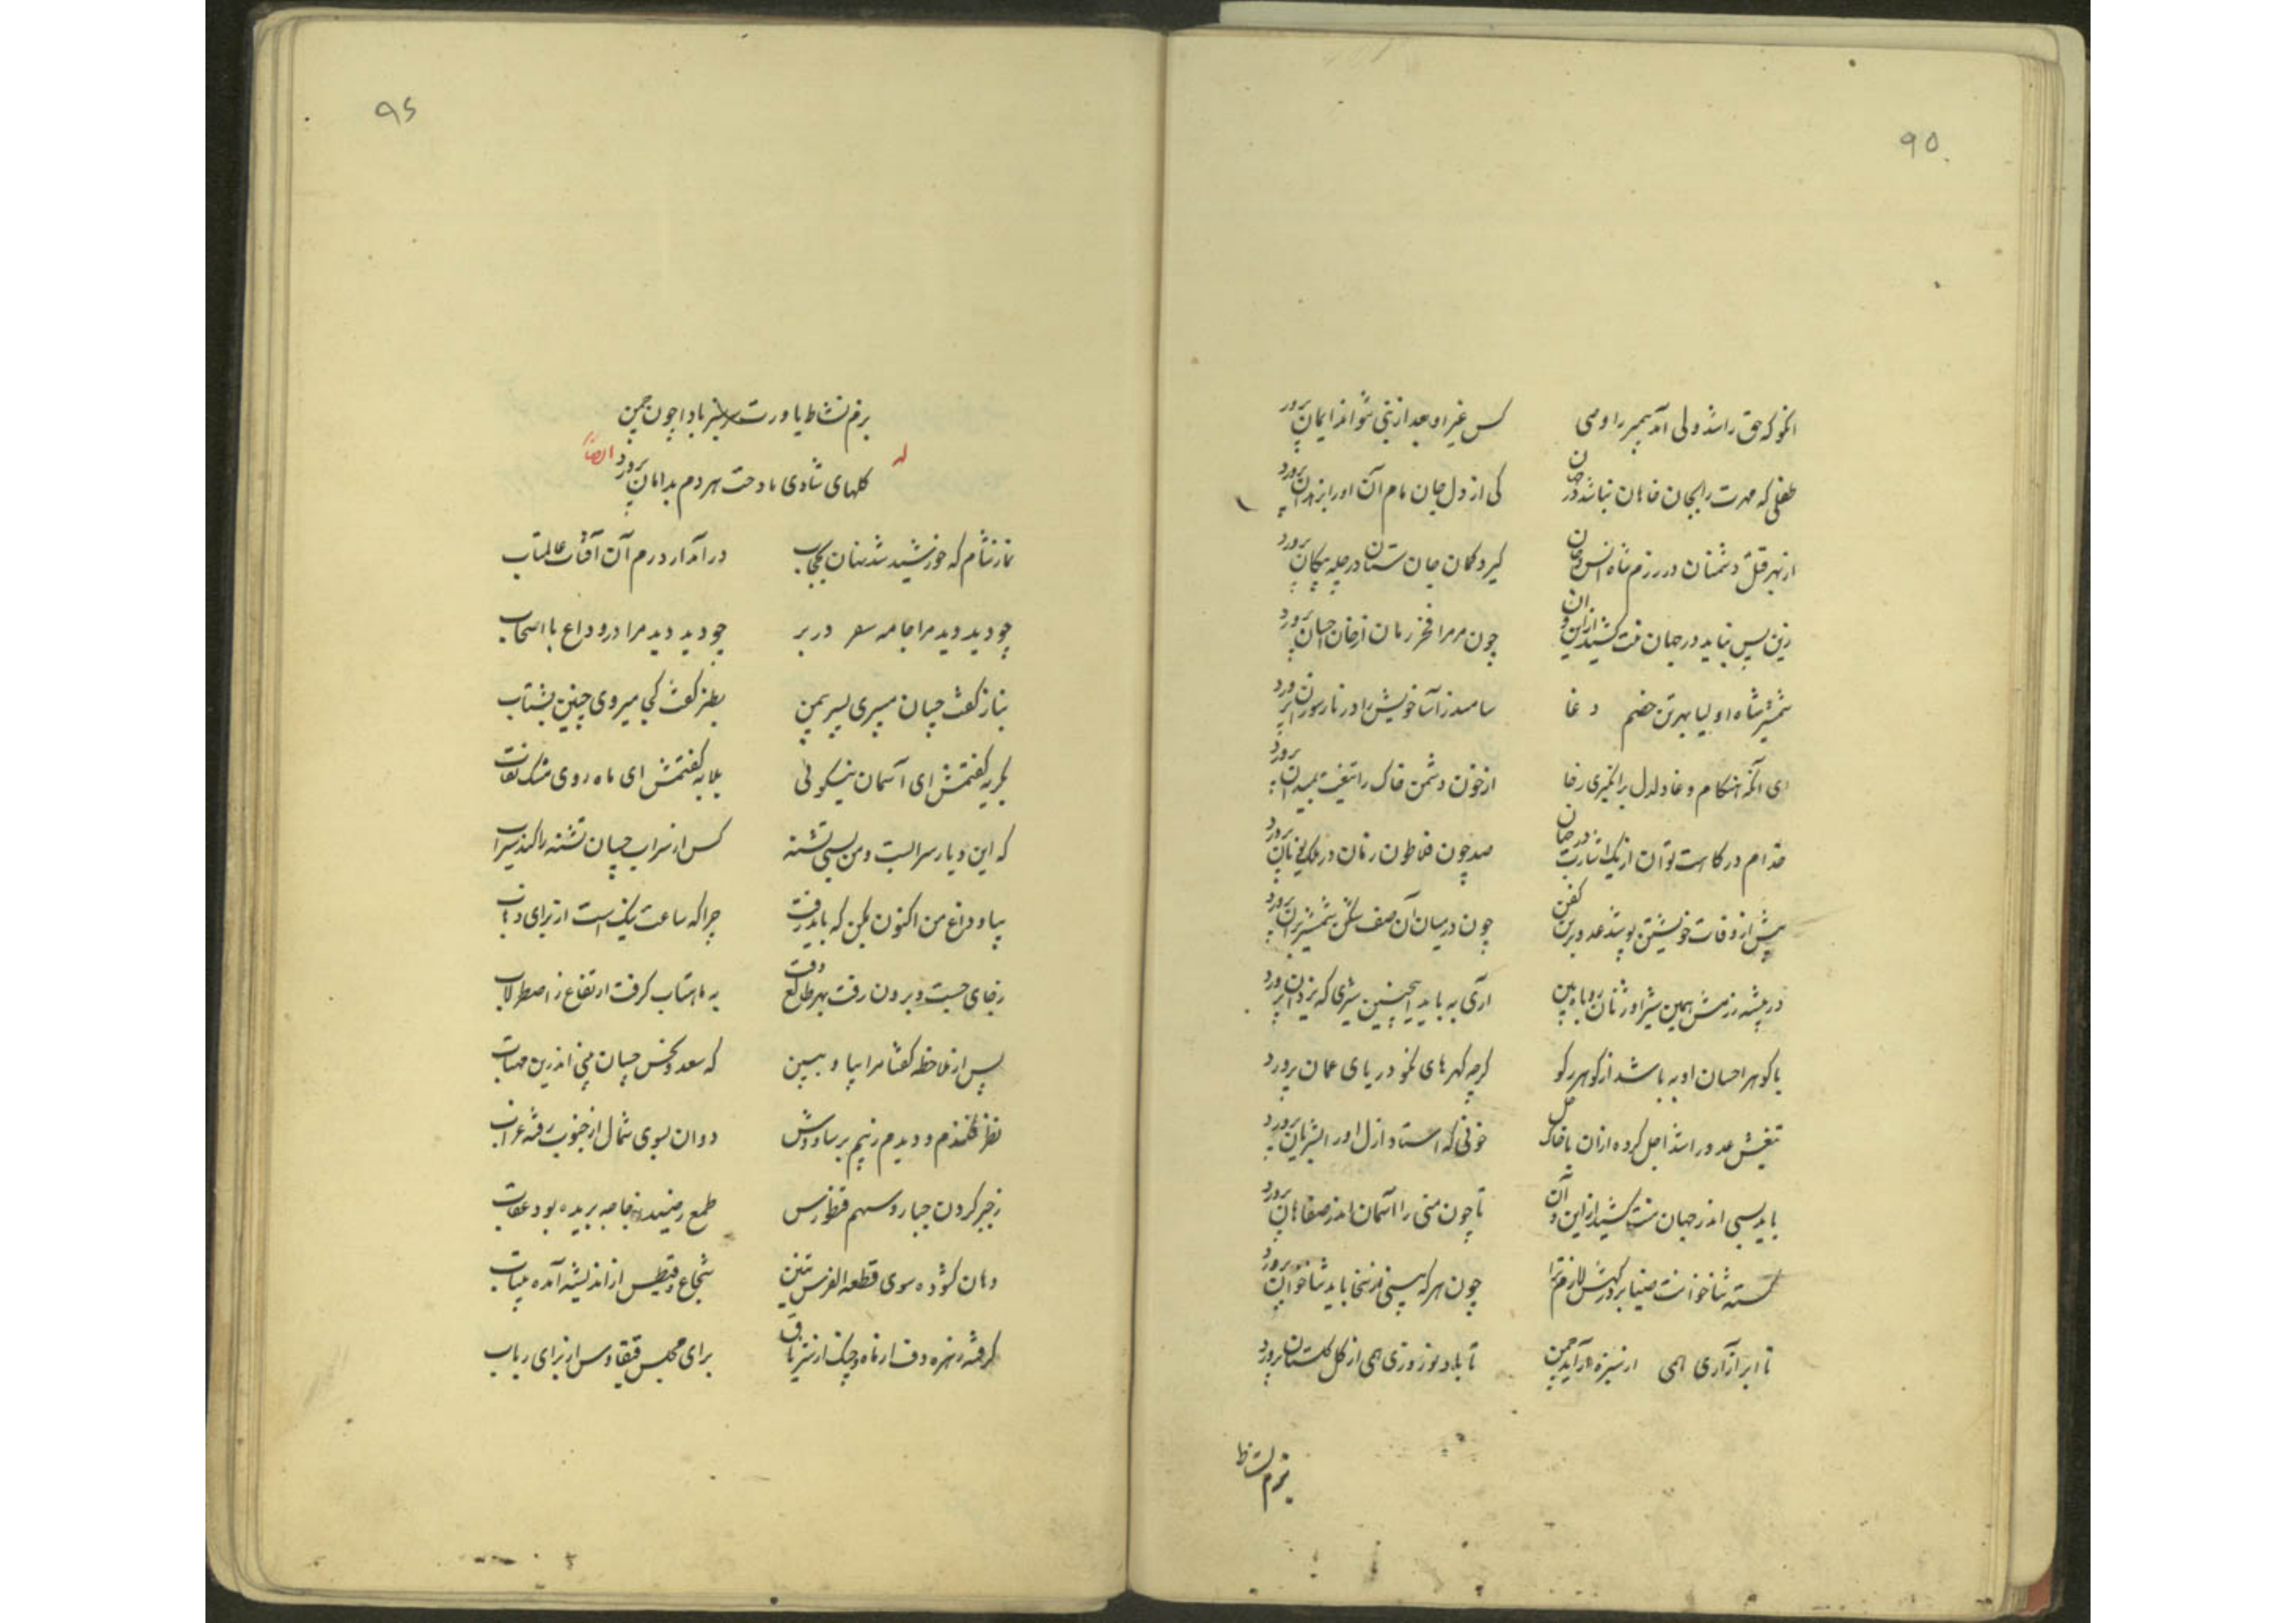 ۹۵
انکو که حق راشد ولی آمد پیمبر را وصی کس غیر او بعد از نبی نتواند ایمان پرورد
طفلی که مهرت را بجان خاهان نباشد در جهان کی از دل و جان مام آن او را بزدان پرورد
از بهر قتل دشمنان در رزم شاه انس و جان گیرد کمان جان ستان در چله پیکان پرورد
زین پس نباید در جهان منت کشید از این و ان چون مر مرا فخر زمان از خان احسان پرورد
شمشیر شاه اولیا بهر تن خصم دغا سامندر آسا خویش را در نار سوزان پرورد
ای آنکه هنکام وغا دلدل برانکیزی زجا از خون دشمن خاک را تیغت بمیدان پرورد
خدام درکاهت توان از یک اشارت در جهان صد چون فلاطون زمان در ملک یونان پرورد
پیش از وفات خویشتن پوشد عدو بر تن کفن چون در میان آن صف شکن شمشیر بران پرورد
در بیشه رزمش همین شیر اوژنان روباه بین آری به باید اینچنین شیری که یزدان پرورد
با کوهر احسان او به باشد از کوهر کو کرچه کهرهای نکو دریای عمان پرورد
تیغش عدو را شد اجل کرده از ان با خاک حل خونی که استاد ازل او را بشریان پرورد
باید بسی اندر جهان منت کشید از این و آن تا چون منی را آسمان اندر صفاهان پرورد
کشته ثنا خوانت ضیا بر درکهش لازم ترا چون هر که بینی از سخا باید ثناخوان پرورد
تا ابر آزاری همی از سبزه آراید چمن تا باد نوروزی همی از کل کلستان پرورد
بزم نشاط
۹۶
بزم نشاط یاورت سرسبز بادا چون چمن
کلهای شادی مادحت هر دم بدامان پرورد
له ایضاً
نماز شام که خورشید شد نهان بحجاب در آمد از درم آن آفتاب عالمتاب
چو دید دید مرا جامه سفر در بر چو دید دید مرا در وداع با اصحاب
بناز کفت چسان میبری بسر بیمن بطنز کفت کجا میروی چنین بشتاب
بکریه کفتمش ای آسمان نیکوئی بلابه کفتمش ای ماه روی مشک نقاب
که این دیار سرابست و من بسی تشنه کس از سراب چسان تشنه را کند سیراب
بیا وداع من اکنون بکن که باید رفت چرا که ساعت نیک است از برای ذهاب
زجای جست و برون رفت بهر طالع وقت به ماهتاب کرفت ارتفاع ز اصطرلاب
پس از ملاحظه کفتا مرا بیا و ببین که سعد و نحس چسان بینی اندرین مهتاب
نظر فکندم و دیدم زنیم بر سیاووش دوان بسوی شمال از جنوب رفته غراب
زجبر کردن جبار و سهم قنطورس طمع رضید جاجه بریده بود عقاب
دهان کشوده سوی قطعه الفرس تنین شجاع و قیطس از اندیشه آمده بیتاب
کرفته زهره دف از ماه و چنک از تیر براق برای مجلس ققاوس از برای رباب